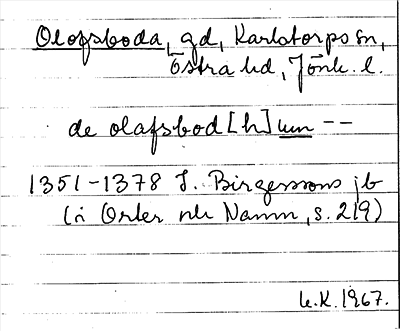 Olofsboda, gd, Karlstorps sn,
Östra hd, Jönk. l.
de olafsbod[h]um --
1351-1378 J. Birgerssons jb
(i Orter och Namn, s. 219)
K.K. 1967.